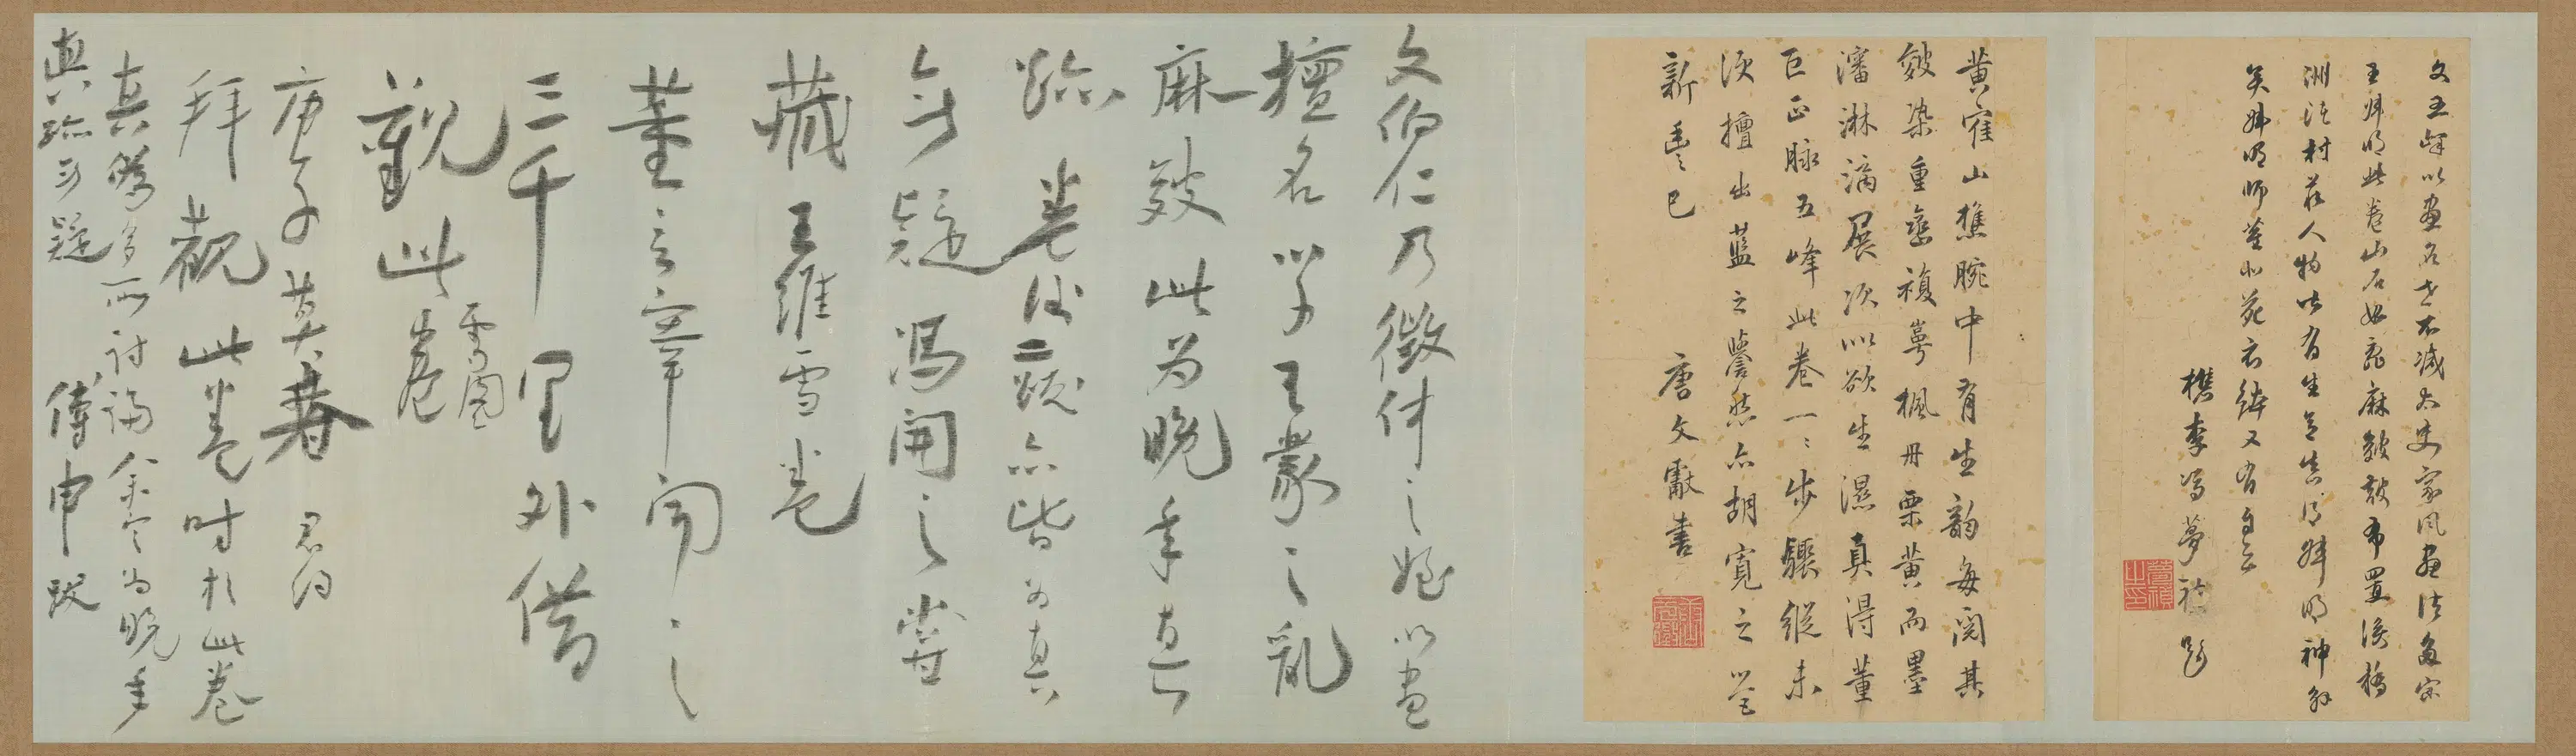 文五峰以畫名世不減大史家風畫法多宗
王叔明此卷山石如亂麻皴皴布置溪橋
洲渚村莊人物皆有生意其得叔明神髓
矣叔明師董北苑衣鉢又有自云
檇李馮夢禎題
黃寉山樵腕中有生韵每閱其
皴染重巒複萼楓丹栗黃而墨
瀋淋漓展次以欲生濕真得董
巨正脉五峰此卷一一步驟縱未
須擅出藍之譽然亦胡寬之營
新豊已
唐文獻書
文伯仁乃徵仲之姪以畫
擅名学王蒙之亂
麻皴此为晚年真
跡卷後二跋亦皆为真
無疑馮開之嘗
藏王維雪卷
董玄宰聞之
三千里外借
觀此卷
雪圖
庚子莫春君約
拜觀此卷時於此卷
真贋多所討論余定为晚年
真跡可疑
傅申跋